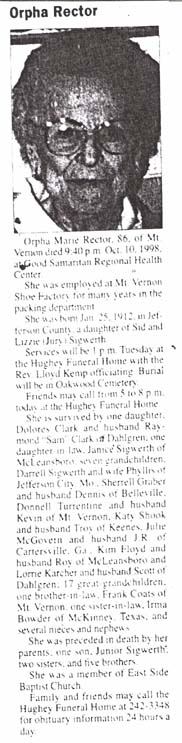 Orpha Rector
Orpha Marie Rector, 86, of Mt.
Vernon died 9:40 p.m. Oct. 10, 1998,
at Good Samaritan Regional Health
Center.
She was employed at Mt. Vernon
Shoe Factory for many years in the
packing department.
She was born Jan. 25, 1912, in Jef-
ferson County, a daughter of Sid and
Lizzie (Jury) Sigwerth.
Services will be 1 p.m. Tuesday at
the Hughey Funeral Home with the
Rev. Lloyd Kemp officiating. Burial
will be in Oakwood Cemetery.
Friends may call from 5 to 8 p.m.
today at the Hughey Funeral Home.
She is survived by one daughter,
Dolores Clark and husband Ray-
mond "Sam" Clark of Dahlgren; one
daughter-in-law, Janice Sigwerth of
McLeansboro; seven grandchildren,
Darrell Sigwerth and wife Phyllis of
Jefferson City, Mo., Sherrell Graber
and husband Dennis of Belleville,
Donnell Turrentine and husband
Kevin of Mt. Vernon, Katy Shook
and husband Troy of Keenes, Julie
McGovern and husband J.R. of
Cartersville, Ga., Kim Floyd and
husband Roy of McLeansboro and
Lorrie Karcher and husband Scott of
Dahlgren; 17 great-grandchildren;
one brother-in-law, Frank Coats of
Mt. Vernon; one sister-in-law, Irma
Bowder of McKinney, Texas; and
several nieces and nephews.
She was preceded in death by her
parents; one son, Junior Sigwerth;
two sisters; and five brothers.
She was a member of East Side
Baptist Church.
Family and friends may call the
Hughey Funeral Home at 242-3348
for obituary information 24 hours a
day.